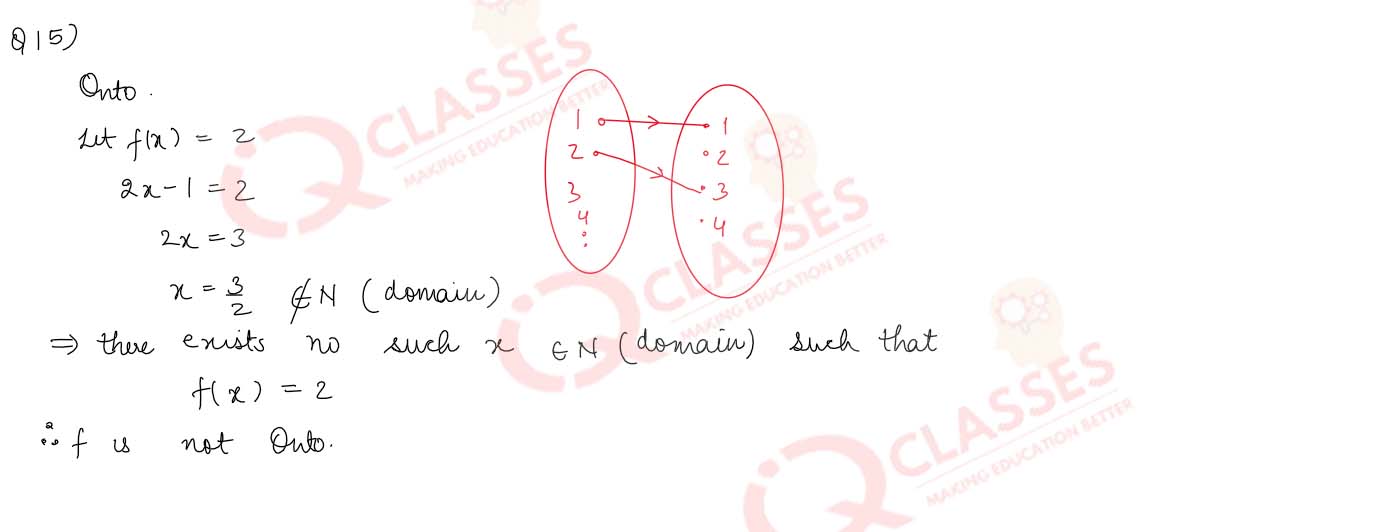 Q 15)
Onto.
Let f(x) = 2
2x-1 = 2
2x = 3
x = 3/2 ∉ N (domain)
⇒ there exists no such x ∈ N (domain) such that
f(x) = 2
∴ f is not Onto.
1 1
2 2
3 3
4 4
:
CLASSES
MAKING EDUCATION BETTER
CLASSES
MAKING EDUCATION BETTER
CLASSES
MAKING EDUCATION BETTER